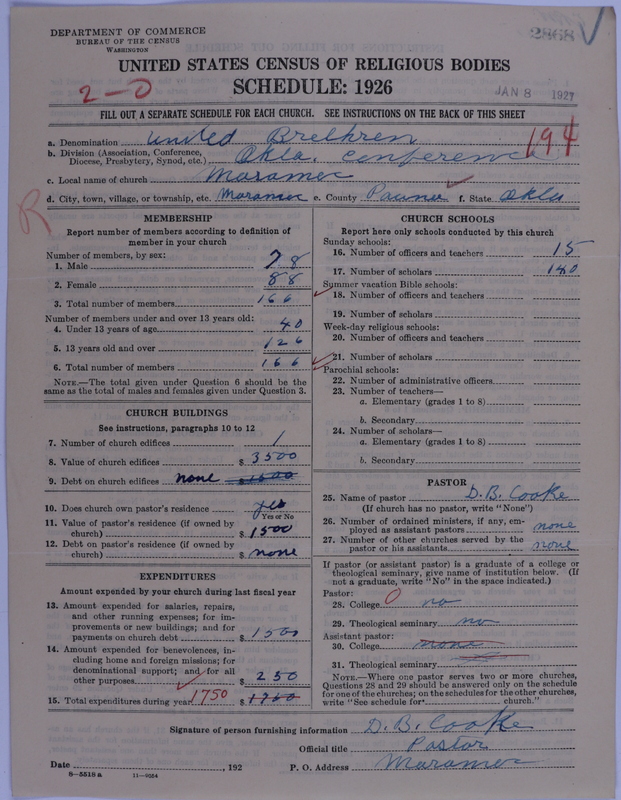 DEPARTMENT OF COMMERCE
BUREAU OF THE CENSUS
WASHINGTON
2868
UNITED STATES CENSUS OF RELIGIOUS BODIES
SCHEDULE: 1926
2-0
JAN 8 1927
FILL OUT A SEPARATE SCHEDULE FOR EACH CHURCH. SEE INSTRUCTIONS ON THE BACK OF THIS SHEET
194
a. Denomination United Brethren
b. Division (Association, Conference, Diocese, Presbytery, Synod, etc.) Okla. Conference
c. Local name of church Maramec
d. City, town, village, or township, etc. Maramec e. County Pawnee f. State Okla
R
MEMBERSHIP
Report number of members according to definition of
member in your church
Number of members, by sex:
1. Male 78
2. Female 88
3. Total number of members 166
Number of members under and over 13 years old:
4. Under 13 years of age 40
5. 13 years old and over 126
6. Total number of members 166
NOTE.—The total given under Question 6 should be the
same as the total of males and females given under Question 3.
CHURCH BUILDINGS
See instructions, paragraphs 10 to 12
7. Number of church edifices 1
8. Value of church edifices $ 3500
9. Debt on church edifices none
10. Does church own pastor's residence yes
Yes or No
11. Value of pastor's residence (if owned by
church) $ 1500
12. Debt on pastor's residence (if owned by
church) $ none
EXPENDITURES
Amount expended by your church during last fiscal year
13. Amount expended for salaries, repairs,
and other running expenses; for im-
provements or new buildings; and for
payments on church debt $ 1500
14. Amount expended for benevolences, in-
cluding home and foreign missions; for
denominational support; and for all
other purposes $ 250
15. Total expenditures during year 1750 $ 1760
CHURCH SCHOOLS
Report here only schools conducted by this church
Sunday schools:
16. Number of officers and teachers 15
17. Number of scholars 140
Summer vacation Bible schools:
18. Number of officers and teachers
19. Number of scholars
Week-day religious schools:
20. Number of officers and teachers
21. Number of scholars
Parochial schools:
22. Number of administrative officers
23. Number of teachers—
a. Elementary (grades 1 to 8)
b. Secondary
24. Number of scholars—
a. Elementary (grades 1 to 8)
b. Secondary
PASTOR
25. Name of pastor D.B. Cooke
(If church has no pastor, write "None")
26. Number of ordained ministers, if any, em-
ployed as assistant pastors none
27. Number of other churches served by the
pastor or his assistants none
If pastor (or assistant pastor) is a graduate of a college or
theological seminary, give name of institution below. (If
not a graduate, write "No" in the space indicated.)
Pastor: 0
28. College no
29. Theological seminary no
Assistant pastor:
30. College none
31. Theological seminary
NOTE.—Where one pastor serves two or more churches,
Questions 28 and 29 should be answered only on the schedule
for one of the churches; on the schedules for the other churches,
write "See schedule for church."
Signature of person furnishing information D.B. Cooke
Official title Pastor
Date , 192 P. O. Address Maramec
8—5518 a 11—9654